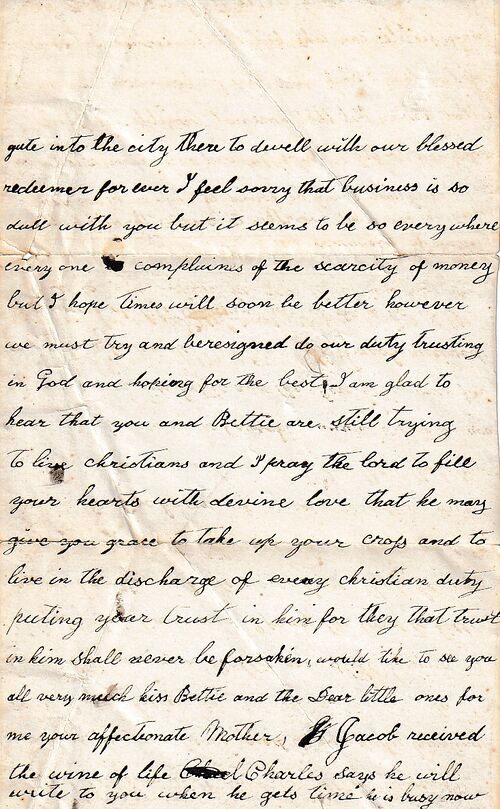 gate into the city there to dwell with our blessed
redeemer for ever I feel sorry that business is so
dull with you but it seems to be so everywhere
every one complaines of the scarcity of money
but I hope times will soon be better however
we must try and beresigned do our duty trusting
in God and hoping for the best, I am glad to
hear that you and Bettie are still trying
to live christians and I pray the lord to fill
your hearts with devine love that he may
give you grace to take up your cross and to
live in the discharge of every christian duty
puting your trust in him for they that trust
in him shall never be forsaken, would like to see you
all very much kiss Bettie and the Dear little ones for
me your affectionate Mother, Jacob received
the wine of life Charles says he will
write to you when he gets time he is busy now